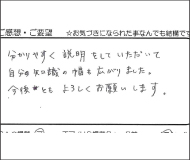 ご感想・ご要望 ☆お気づきになられた事なんでも結構です
分かりやすく説明をしていただいて
自分の知識の幅も広がりました。
今後ともよろしくお願いします。